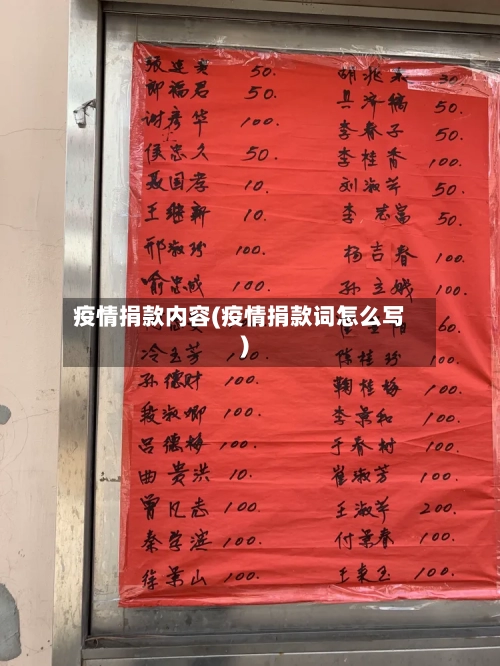 张连贵 50. 胡兆东 30.
即福君 50. 具济镐 50.
谢彦华 100. 李春子 50.
侯忠久 50. 李桂香 100.
聂国孝 10. 刘淑芹 50.
王继新 10. 李志富 50.
邢淑珍 100. 杨吉春 100.
喻忠成 100. 孙立娥 100.
疫情捐款内容(疫情捐款词怎么写
)
60.
冷玉芳 陈桂珍 100.
孙德财 100. 鞠桂梅 100.
段淑卿 100. 李景和 100.
吕德梅 100. 于春树 100.
曲贵洪 10. 崔淑芳 100.
曾凡志 100. 王淑华 200.
秦学滨 100. 付景春 100.
徐景山 100. 王来玉 100.